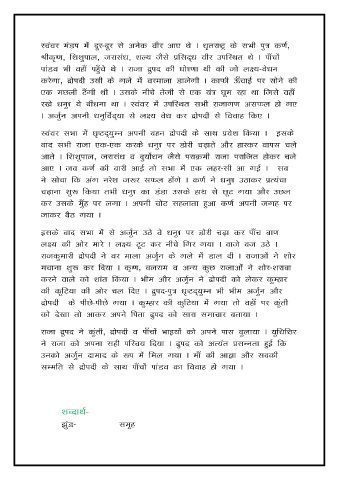 स्वंवर मंडप में दूर-दूर से अनेक वीर आए थे । धृतराष्ट्र के सभी पुत्र कर्ण,
श्रीकृष्ण, शिशुपाल, जरासंध, शल्य जैसे प्रसिद्ध वीर उपस्थित थे । पाँचों
पांडव भी वहाँ पहुँचे थे । राजा द्रुपद की घोषणा थी की जो लक्ष्य-वेधन
करेगा, द्रोपदी उसी के गले में वरमाला डालेगी । काफी ऊँचाई पर सोने की
एक मछली टँगी थी । उसके नीचे तेजी से एक यंत्र घूम रहा था जिसे वहीं
रखे धनुष से बींधना था । स्वंवर में उपस्थित सभी राजागण असफल हो गए
। अर्जुन अपनी धनुर्विद्या से लक्ष्य वेध कर द्रोपदी से विवाह किए ।
स्वंवर सभा में धृष्टद्युम्न अपनी बहन द्रोपदी के साथ प्रवेश किया । इसके
बाद सभी राजा एक-एक करके धनुष पर डोरी चढ़ाते और हारकर वापस चले
आते । शिशुपाल, जरासंध व दुर्योधन जैसे पराक्रमी राजा पराजित होकर चले
आए । जब कर्ण की बारी आई तो सभा में एक लहर-सी आ गई । सब
ने सोचा कि अंग नरेश जरूर सफल होंगे । कर्ण ने धनुष उठाकर प्रत्यंचा
चढ़ाना शुरू किया तभी धनुष का डंडा उसके हाथ से छूट गया और उछल
कर उसके मुँह पर लगा । अपनी चोट सहलाता हुआ कर्ण अपनी जगह पर
जाकर बैठ गया ।
इसके बाद सभा में से अर्जुन उठे वे धनुष पर डोरी चढ़ा कर पाँच बाण
लक्ष्य की ओर मारे । लक्ष्य टूट कर नीचे गिर गया । बाजे बज उठे ।
राजकुमारी द्रोपदी ने वर माला अर्जुन के गले में डाल दी । राजाओं ने शोर
मचाना शुरू कर दिया । कृष्ण, बलराम व अन्य कुछ राजाओं ने शोर-शराबा
करने वाले को शांत किया । भीम और अर्जुन ने द्रोपदी को लेकर कुम्हार
की कुटिया की ओर चल दिए । द्रुपद-पुत्र धृष्टद्युम्न भी भीम अर्जुन और
द्रोपदी के पीछे-पीछे गया । कुम्हार की कुटिया में गया तो वहाँ पर कुंती
को देखा तो आकर अपने पिता द्रुपद को सारा समाचार बताया ।
राजा द्रुपद ने कुंती, द्रोपदी व पाँचों भाइयों को अपने पास बुलाया । युधिष्ठिर
ने राजा को अपना सही परिचय दिया । द्रुपद को अत्यंत प्रसन्नता हुई कि
उनको अर्जुन दामाद के रूप में मिल गया । माँ की आज्ञा और सबकी
सम्मति से द्रोपदी के साथ पाँचों पांडव का विवाह हो गया ।
शब्दार्थ-
झुंड- समूह